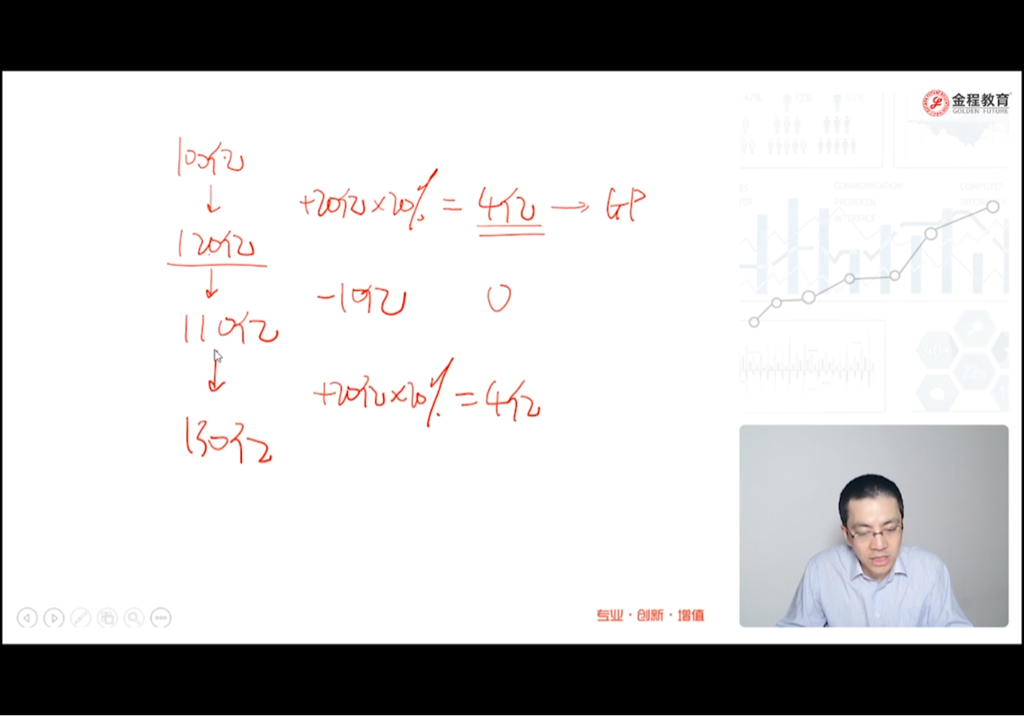 金程教育
GOLDEN FUTURE
100亿
↓
+20亿×20% = 4亿 → GP
120亿
↓
-10亿 0
110亿
↓
+20亿×20% = 4亿
130亿
专业·创新·增值